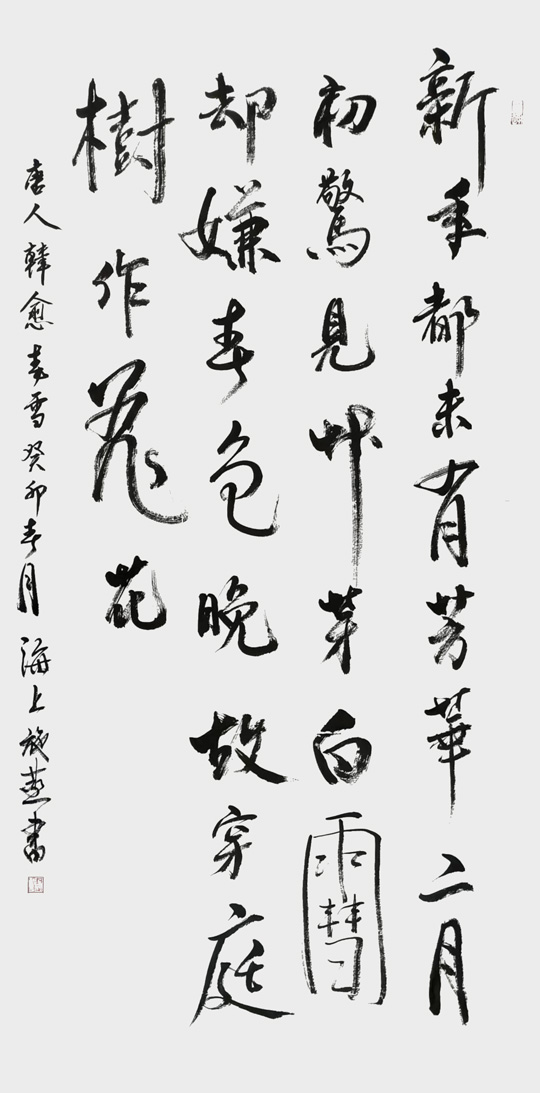 新年都未有芳華二月
初驚見艸芽白䨮
却嫌春色晚故穿庭
樹作飛花
唐人韓愈春雪癸卯春月海上施燕書